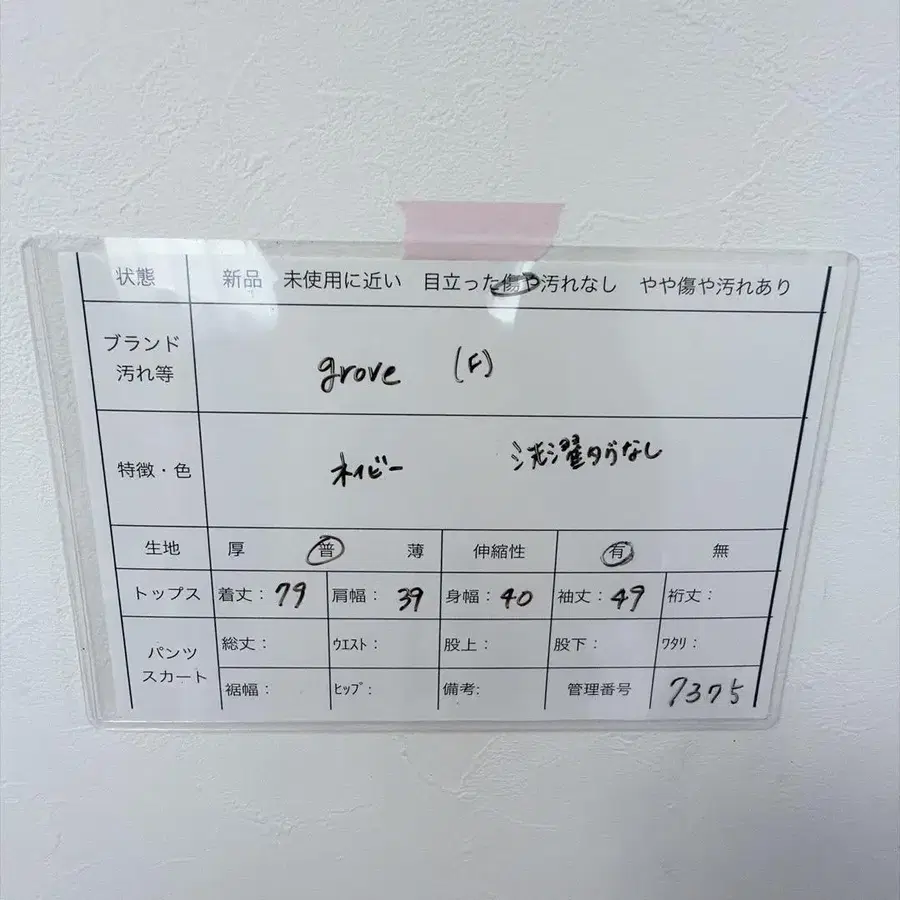 状態 新品 未使用に近い 目立った傷や汚れなし やや傷や汚れあり
ブランド
汚れ等
grove (F)
特徴・色 ネイビー 洗濯タグなし
生地 厚 普 薄 伸縮性 有 無
トップス 着丈: 79 肩幅: 39 身幅: 40 袖丈: 49 裄丈:
パンツ
スカート
総丈: ウエスト: 股上: 股下: ワタリ:
裾幅: ヒップ: 備考: 管理番号 7375